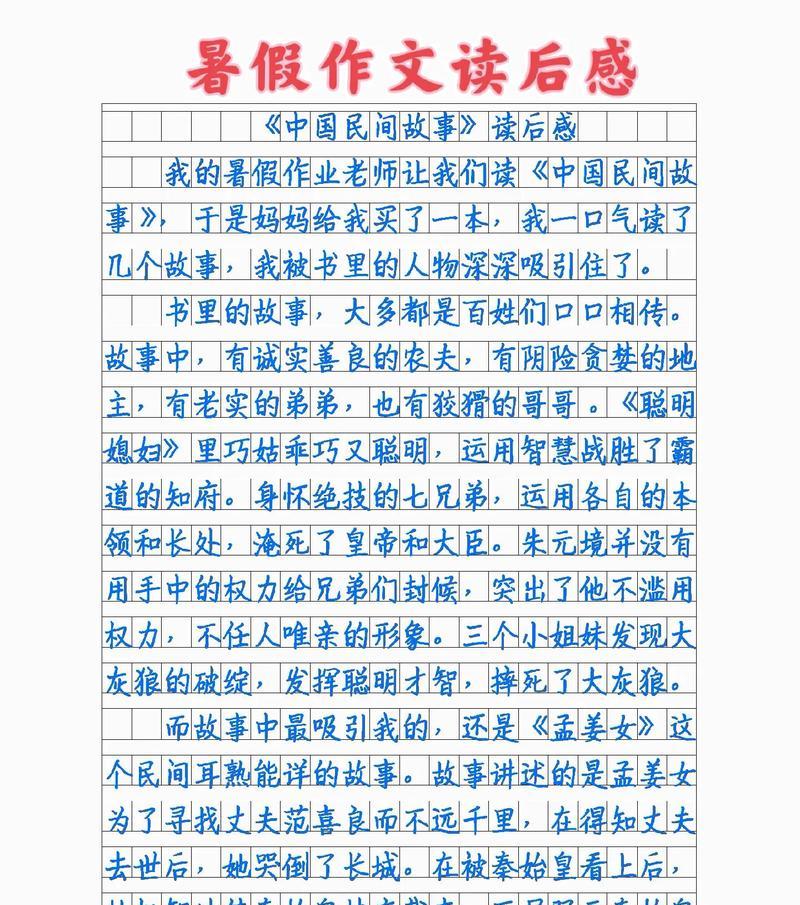 暑假作文读后感
《中国民间故事》读后感
我的暑假作业老师让我们读《中国民间故
事》，于是妈妈给我买了一本，我一口气读了
几个故事，我被书里的人物深深吸引住了。
书里的故事，大多都是百姓们口口相传。
故事中，有诚实善良的农夫，有阴险贪婪的地
主，有老实的弟弟，也有狡猾的哥哥。《聪明
媳妇》里巧姑乖巧又聪明，运用智慧战胜了霸
道的知府。身怀绝技的七兄弟，运用各自的本
领和长处，淹死了皇帝和大臣。朱元境并没有
用手中的权力给兄弟们封候，突出了他不滥用
权力，不任人唯亲的形象。三个小姐妹发现大
灰狼的破绽，发挥聪明才智，摔死了大灰狼。
而故事中最吸引我的，还是《孟姜女》这
个民间耳熟能详的故事。故事讲述的是孟姜女
为了寻找丈夫范喜良而不远千里，在得知丈夫
去世后，她哭倒了长城。在被秦始皇看上后，